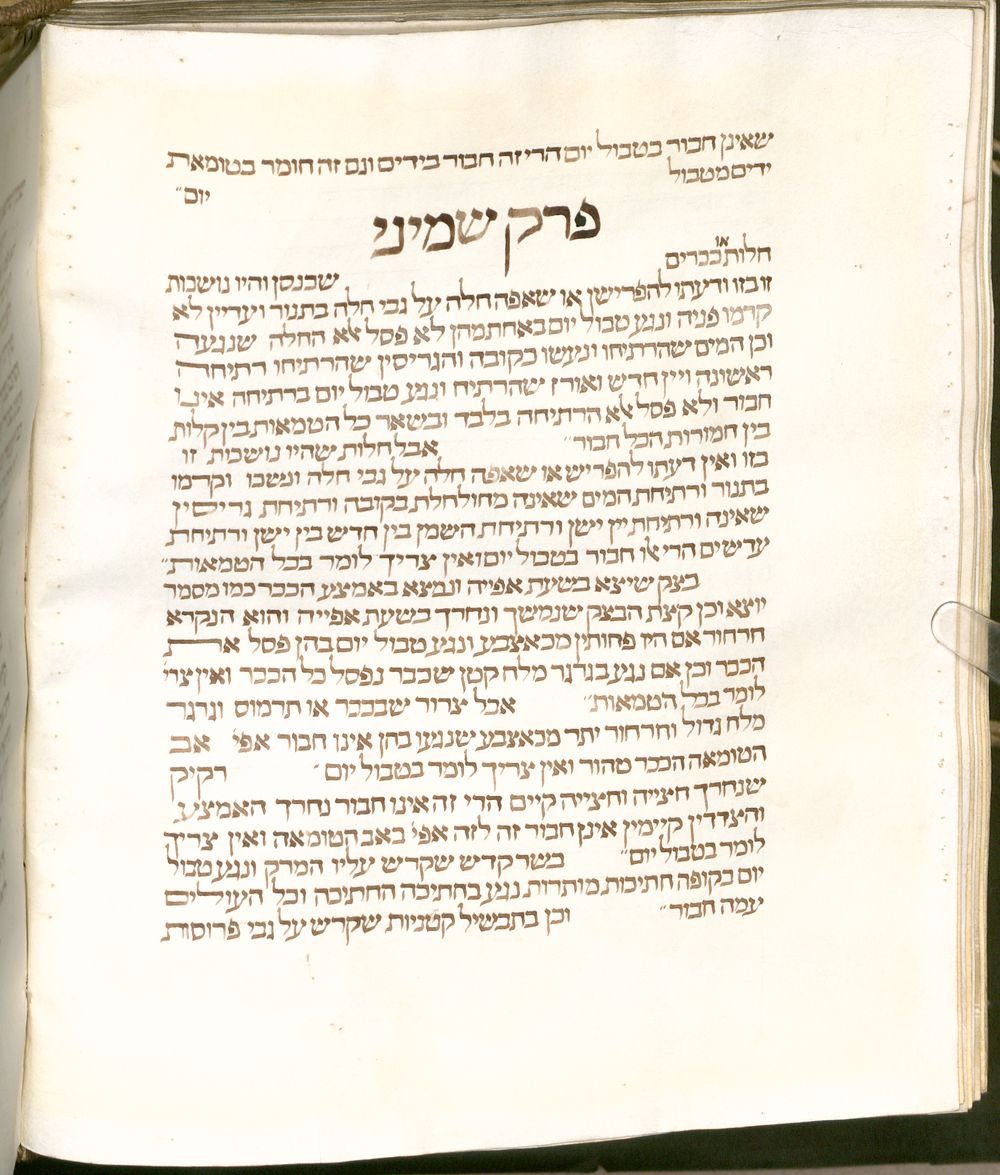 שאינן חבור בטבול יום הרי זה חבור בידים וגם זה חומר בטומאת
ידים מטבול
יום״
פרק שמיני
חלות או ככרים
שכנסן והיו נושכות
זו בזו ודעתו להפרישן או שאפה חלה על גבי חלה בתנור ועדיין לא
קרמו פניה ונגע טבול יום באחת מהן לא פסל אלא החלה שנגעה
וכן המים שהרתיחו וניעשו כקובה והגריסין שהרתיחו רתיחה
ראשונה ויין חדש ואורז שהרתיח ונגע טבול יום ברתיחה אינו
חבור ולא פסל אלא הרתיחה בלבד ובשאר כל הטמאות בין קלות
בין חמורות הכל חבור״ אבל חלות שהיו נושכות זו
בזו ואין דעתו להפריש או שאפה חלה על גבי חלה ונשכו וקרמו
בתנור ורתיחת המים שאינה מחולחלת בקובה ורתיחת גריסין
שאינה ורתיחת יין יישן ורתיחת השמן בין חדיש בין יישן ורתיחת
עדשים הרי אלו חבור בטבול יום ואין צריך לומר בכל הטמאות״
בצק שיצא בשעת אפייה ונמצא באמצע הככר כמו מסמר
יוצא וכן קצת הבצק שנמשך ונחרך בשעת אפייה והוא הנקרא
חרחור אם היו פחותין מכאצבע ונגע טבול יום בהן פסל את
הככר וכן אם נגע בגרגר מלח קטן שבכר נפסל כל הככר ואין צרי׳
לומר בכל הטמאות״ אבל צרור שבככר או תרמוס וגרגר
מלח גדול וחרחור יתר מכאצבע שנגעו בהן אינן חבור אפי׳ אב
הטומאה הככר טהור ואין צריך לומר בטבול יום״ רקיק
שנחרך חצייה וחצייה קיים הרי זה אינו חבור נחרך האמצע
והצדדין קיימין אינן חבור זה לזה אפי׳ באב הטומאה ואין צריך
לומר בטבול יום״ בשר קדש שקרש עליו המרק ונגע טבול
יום בקופה חתיכות מותרות נגע בחתיכה החתיכה וכל העולים
עמה חבור״ וכן בתבשיל קטניות שקרש על גבי פרוסות